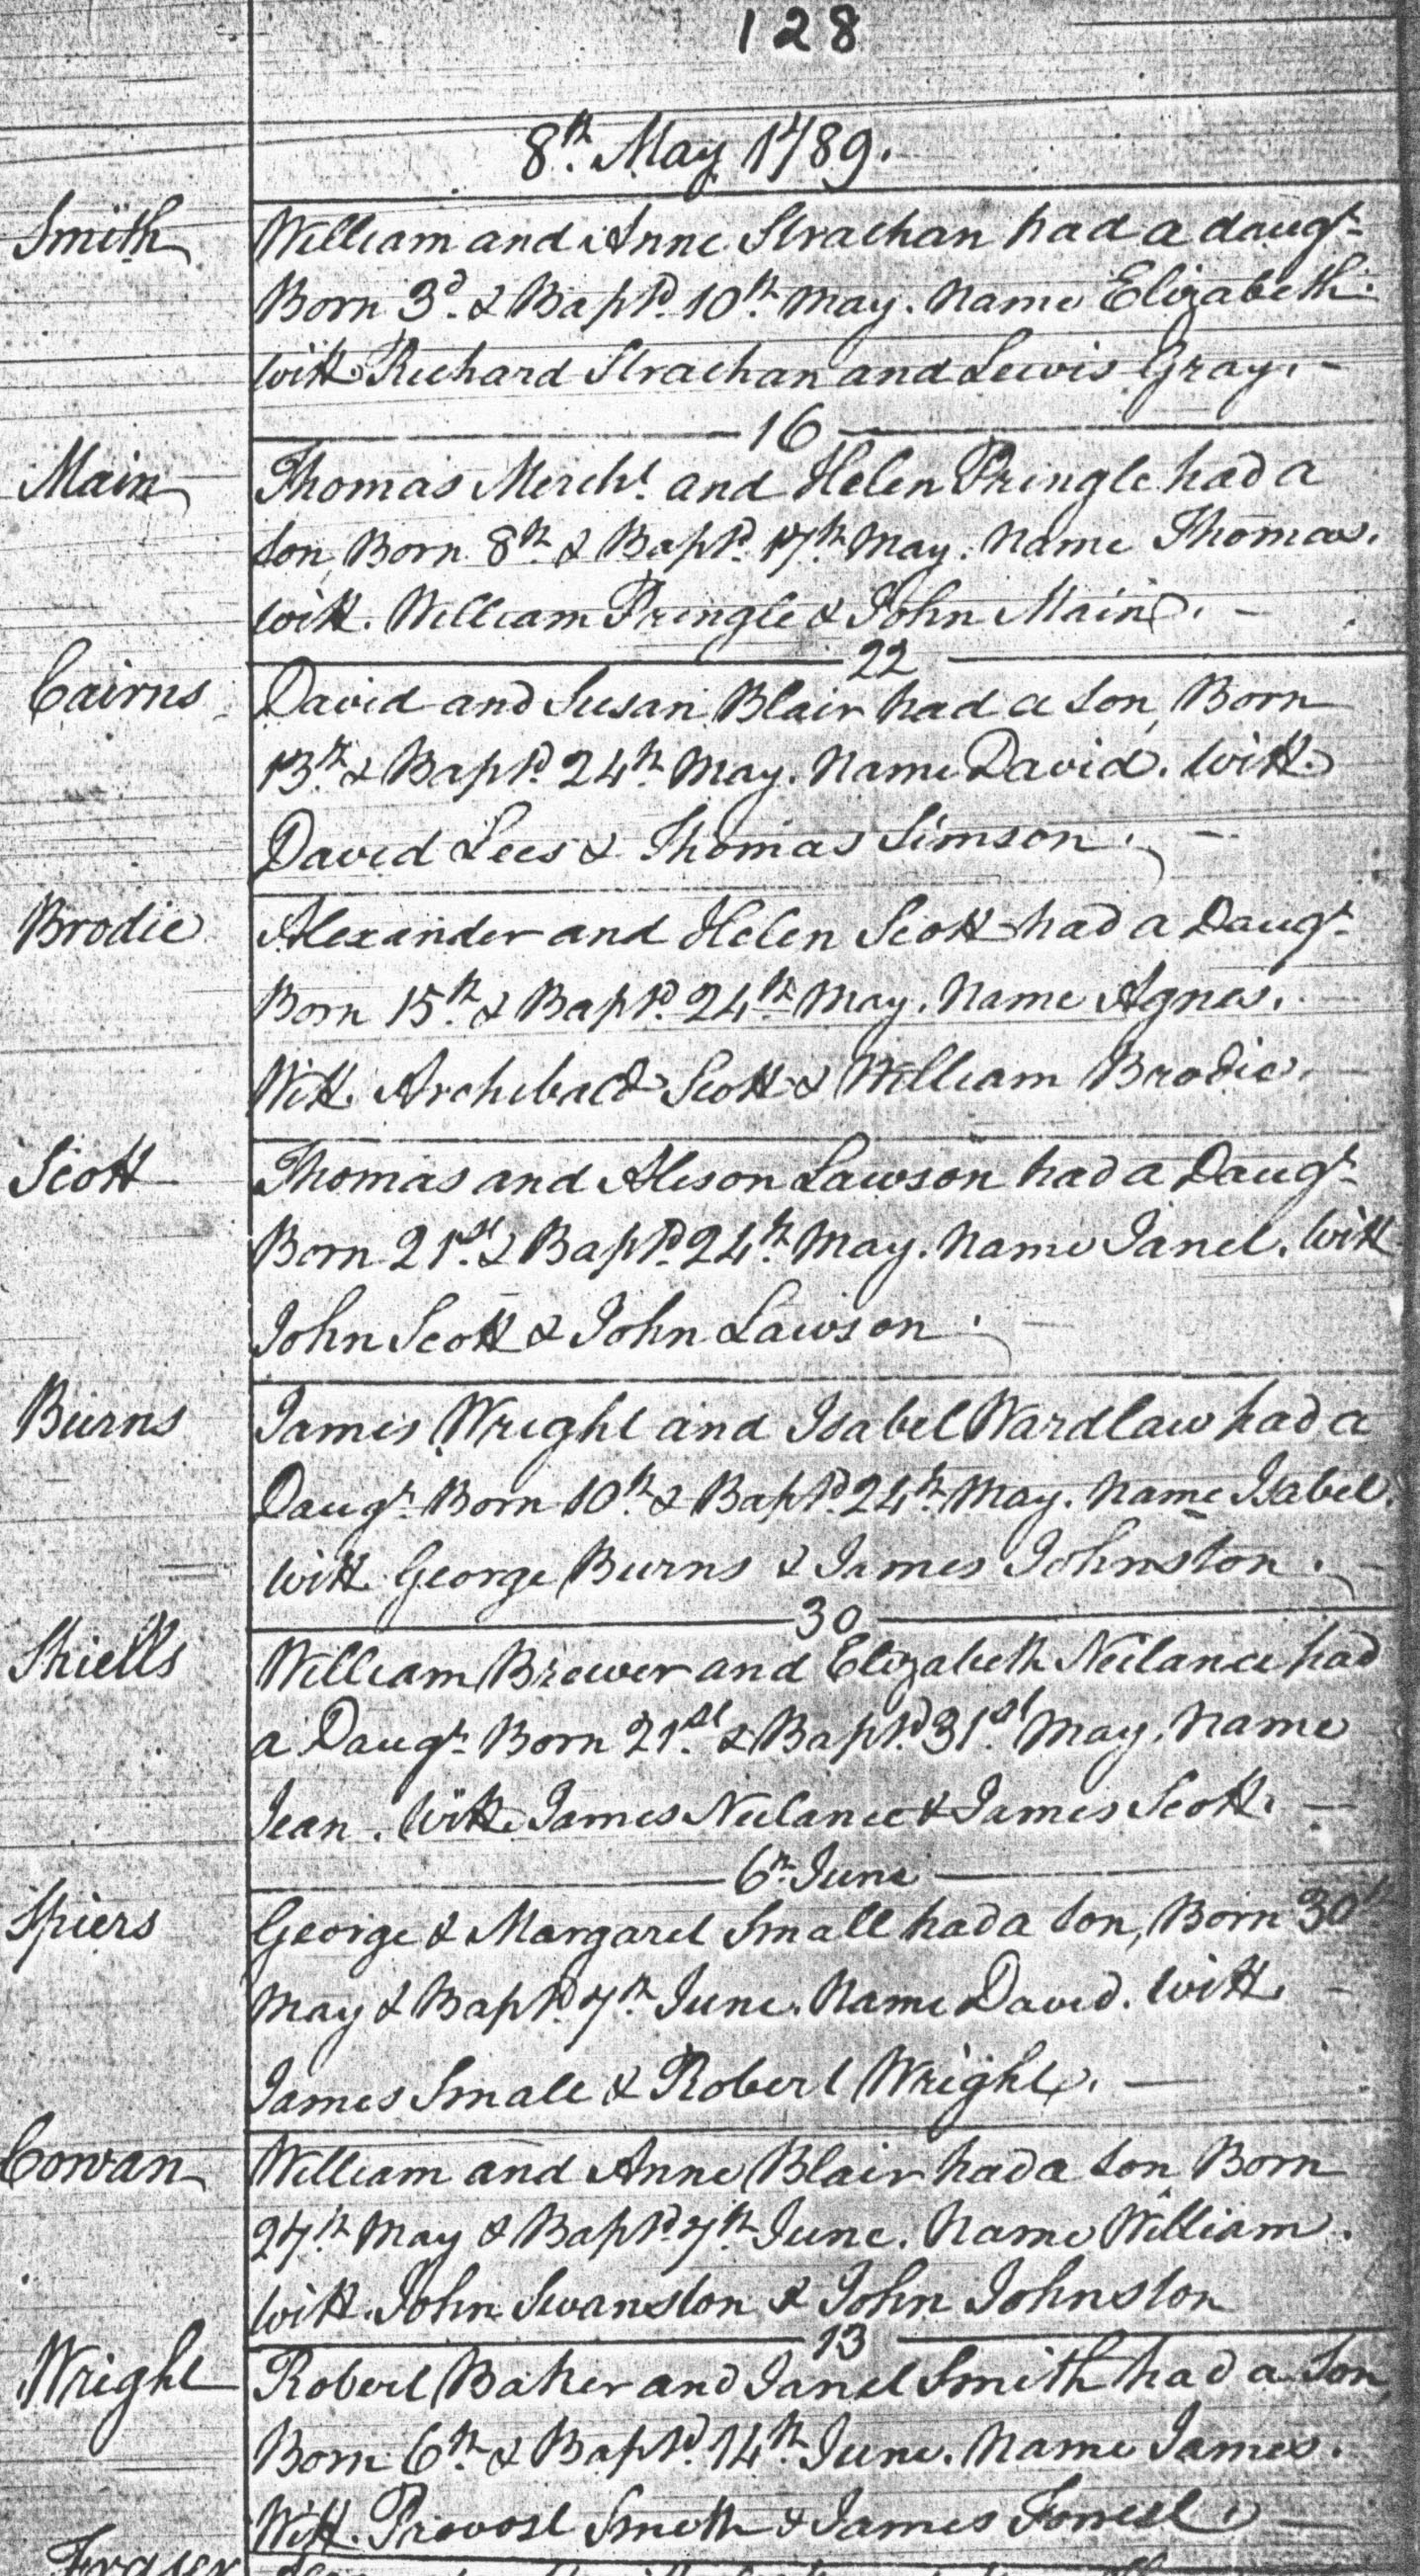 128
8th. May 1789.
Smith William and Anne Strachan had a daugr.
Born 3d. & Baptd. 10th. May. Name Elizabeth.
witt. Richard Strachan and Lewis Gray. –
16
Main Thomas Mercht. and Helen Pringle had a
son, Born 8th. & Baptd. 17th. May. Name Thomas.
witt. William Pringle & John Main. –
22
Cairns David and Susan Blair had a son, Born
13th. & Baptd. 24th. May. Name David. witt.
David Lees & Thomas Simson. –
Brodie Alexander and Helen Scott had a Daugr.
Born 15th. & Baptd. 24th. May. Name Agnes.
Witt. Archibald Scott & William Brodie. –
Scott Thomas and Alison Lawson had a Daugr.
Born 21st. & Baptd. 24th. May. Name Janet. witt
John Scott & John Lawson. –
Burns James Wright and Isabel Wardlaw had a
Daugr. Born 10th. & Baptd. 24th. May. Name Isabel.
witt. George Burns & James Johnston. –
30
Shiells William Brewer and Elizabeth Neilance had
a Daugr. Born 21st. & Baptd. 31st. May. Name
Jean. Witt. James Neilance & James Scott. –
6th. June
Spiers George & Margaret Small had a son, Born 30th
May & Baptd. 7th. June. Name David. witt. –
James Small & Robert Wright. –
Cowan William and Anne Blair had a son Born
27th. May & Baptd. 7th. June. Name William.
witt. John Swanston & John Johnston
13
Wright Robert Baker and Janet Smith had a son,
Born 6th. & Baptd. 14th. June. Name James.
Witt. Provost Smith & James Forrest. –
Fraser